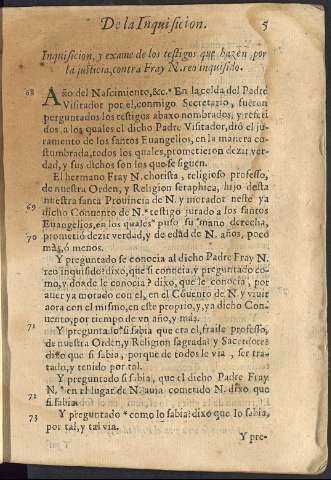 De la Inquisicion. 5
Inquisicion, y exame de los testigos que hazen, por
la justicia, contra Fray N. reo inquisido.
68 Año del Nascimiento, &c. En la celda del Padre
Visitador por el, conmigo Secretario, fueron
perguntados los testigos abaxo nombrados, y repeti
dos, a los quales el dicho Padre Visitador, dió el ju-
ramento de los santos Euangelios, en la manera co-
stumbrada, todos los quales, prometieron dezir ver-
dad, y sus dichos son los que se siguen.
El hermano Fray N. chorista, religioso professo,
de nuestra Orden, y Religion seraphica, hijo desta
nuestra santa Prouincia de N. y morador neste ya
69 dicho Conuento de N. * testigo jurado a los santos
Euangelios, en los quales puso su mano derecha,
70 prometió dezir verdad, y de edad de N. años, poco
más, ó menos.
Y preguntado se conocia al dicho Padre Fray N.
reo inquisido? dixo, que si conocia, y preguntado co-
mo, y donde le conocia? dixo, que le conocia, por
auer ya morado con el, en el Cõuento de N. y viuir
aora con el mismo, en este proprio, y, ya dicho Con-
uento, por tiempo de vn año, y más.
71 Y preguntado si sabia que era el, fraile professo,
de nuestra Orden, y Religion sagrada? y Sacerdotes
dixo que si sabia, porque de todos le via, ser tra-
tado, y tenido por tal.
Y preguntado si sabia, que el dicho Padre Fray
72 N. * en el lugar de N. auia cometido N. dixo que
si sabia.
73 Y preguntado * como lo sabia? dixo que lo sabia,
por tal, y tal via.
Y pre-